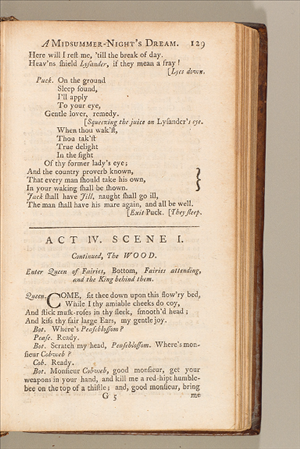 A MIDSUMMER-NIGHT'S DREAM. 129
Here will I rest me, 'till the break of day.
Heav'ns shield Lysander, if they mean a fray!
[Lyes down.
Puck. On the ground
Sleep sound,
I'll apply
To your eye,
Gentle lover, remedy.
[Squeezing the juice on Lysander's eye.
When thou wak'st,
Thou tak'st
True delight
In the sight
Of thy former lady's eye;
And the country proverb known,
That every man should take his own,
In your waking shall be shown.
Jack shall have Jill, naught shall go ill,
The man shall have his mare again, and all be well.
[Exit Puck. [They sleep.
ACT IV. SCENE I.
Continued, The WOOD.
Enter Queen of Fairies, Bottom, Fairies attending,
and the King behind them.
Queen. COME, sit thee down upon this flow'ry bed,
While I thy amiable cheeks do coy,
And stick musk-roses in thy sleek, smooth'd head;
And kiss thy fair large Ears, my gentle joy.
Bot. Where's Peaseblossom?
Pease. Ready.
Bot. Scratch my head, Peaseblossom. Where's mon-
sieur Cobweb?
Cob. Ready.
Bot. Monsieur Cobweb, good monsieur, get your
weapons in your hand, and kill me a red-hipt humble-
bee on the top of a thistle; and, good monsieur, bring
G 5 me